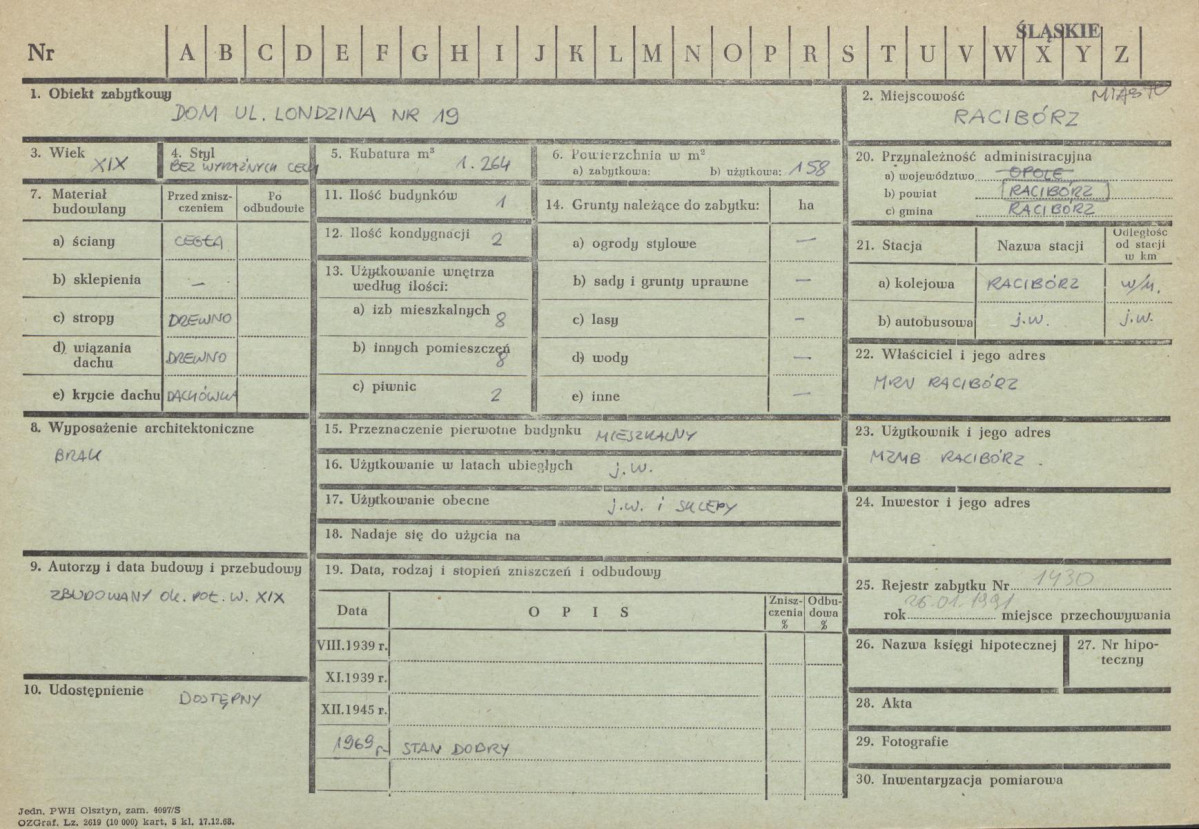 ŚLĄSKIE
Nr A B C D E F G H I J K L M N O P R S T U V W X Y Z
1. Obiekt zabytkowy
DOM UL. LONDZINA NR 19
2. Miejscowość MIASTO
RACIBÓRZ
3. Wiek XIX
4. Styl
BEZ WYRAŹNYCH CECH
5. Kubatura m³ 1.264
6. Powierzchnia w m²
a) zabytkowa: b) użytkowa: 158
7. Materiał budowlany
Przed zniszczeniem
Po odbudowie
a) ściany CEGŁA
b) sklepienia —
c) stropy DREWNO
d) wiązania dachu DREWNO
e) krycie dachu DACHÓWKA
8. Wyposażenie architektoniczne
BRAK
9. Autorzy i data budowy i przebudowy
ZBUDOWANY OK. POŁ. W. XIX
10. Udostępnienie DOSTĘPNY
11. Ilość budynków 1
12. Ilość kondygnacji 2
13. Użytkowanie wnętrza
według ilości:
a) izb mieszkalnych 8
b) innych pomieszczeń 8
c) piwnic 2
14. Grunty należące do zabytku: ha
a) ogrody stylowe —
b) sady i grunty uprawne —
c) lasy –
d) wody —
e) inne —
15. Przeznaczenie pierwotne budynku MIESZKALNY
16. Użytkowanie w latach ubiegłych j.w.
17. Użytkowanie obecne j.w. i SKLEPY
18. Nadaje się do użycia na
19. Data, rodzaj i stopień zniszczeń i odbudowy
Data OPIS Zniszczenia % Odbudowa %
VIII.1939 r.
XI.1939 r.
XII.1945 r.
1969 r. STAN DOBRY
20. Przynależność administracyjna
a) województwo OPOLE
b) powiat RACIBÓRZ
c) gmina RACIBÓRZ
21. Stacja Nazwa stacji Odległość od stacji w km
a) kolejowa RACIBÓRZ w/m.
b) autobusowa j.w. j.w.
22. Właściciel i jego adres
MRN RACIBÓRZ
23. Użytkownik i jego adres
MZMB RACIBÓRZ.
24. Inwestor i jego adres
25. Rejestr zabytku Nr 1430
rok 26.01.1991 miejsce przechowywania
26. Nazwa księgi hipotecznej
27. Nr hipoteczny
28. Akta
29. Fotografie
30. Inwentaryzacja pomiarowa
Jedn. PWH Olsztyn, zam. 4097/S
OZGraf. Lz. 2619 (10 000) kart, 5 kl, 17.12.68.